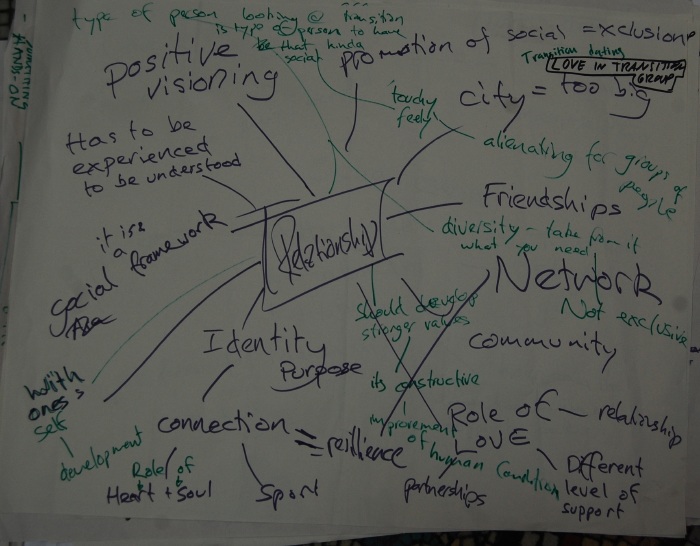 type of person looking @ transition
is type of person to have
be that kinda
social
positive
visioning
promotion of social =
Transition dating
LOVE IN TRANSITION
GROUP
city = too big
touchy
feely
alienating for groups of
people
Has to be
experienced
to be understood
Friendships
diversity - take from it
what you need
Not exclusive
Relationship
it is
a
social framework
Network
community
should develop
stronger values
its constructive
improvement
of human condition
Identity
Purpose
with
ones
self
development
connection
= resillience
Role of
Heart + Soul
Sport
Role of - relationship
LOVE
partnerships
Different
level of
support
HANDS-ON